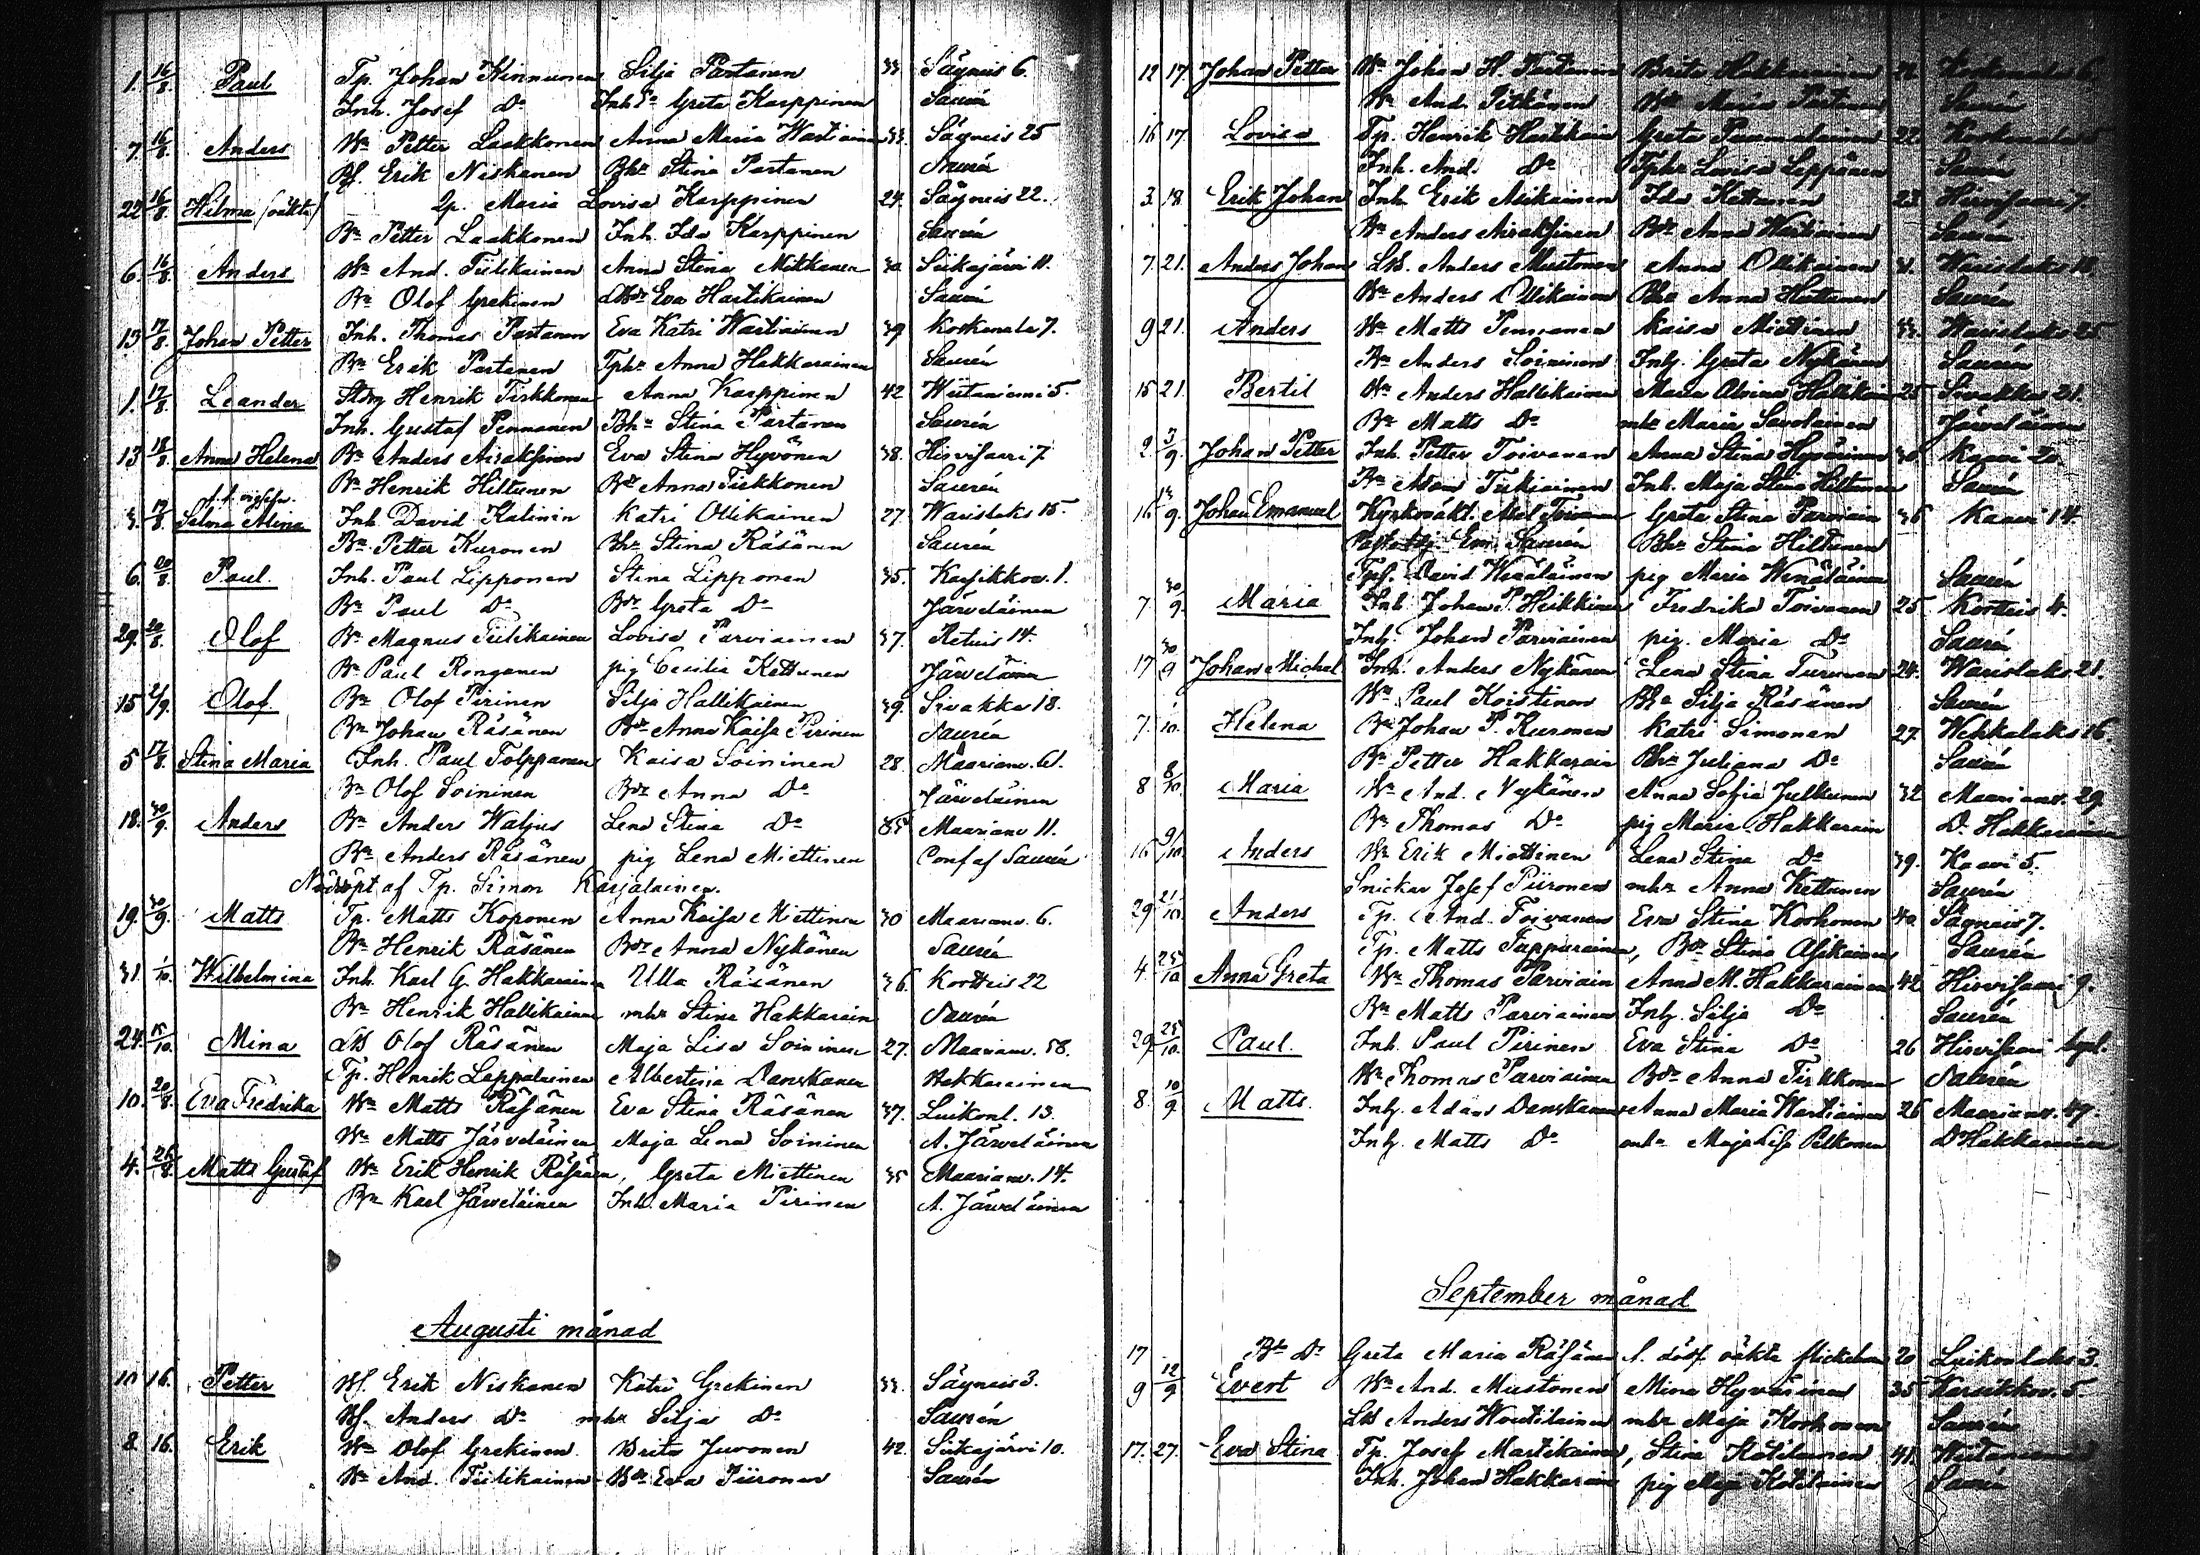 1. 16/8. Paul Tp. Johan Kinnunen Silja Partanen 33 Säyneis 6.
Inh. Josef Do Inha Greta Karppinen Saurén
7. 16/8. Anders Bn Petter Laakkonen Anna Maria Wartiainen 33. Säyneis 25
Bf. Erik Niskanen Bhr Stina Partanen Saurén
22 16/8. Hilma (oäkta) Lp. Maria Lovisa Karppinen 24. Säyneis 22.
Bn Petter Laakkonen Inh. Ida Karppinen Saurén
6. 16/8. Anders Bn And. Tiilikainen Anna Stina Mikkanen 30 Siikajärvi 11.
Bn Olof Grekinen Bdr Eva Hartikainen Saurén
13 17/8. Johan Petter Inh. Thomas Partanen Eva Katri Wartiainen 39. Koskenala 7.
Bn Erik Partanen Tphr Anna Hakkarainen Saurén
1. 17/8. Leander Henrik Tirkkonen Anna Karppinen 42 Wiitaniemi 5.
Inh. Gustaf Pennanen Bhr Stina Partanen Saurén
13 18/8. Anna Helena Bn Anders Airaksinen Eva Stina Hyvönen 38. Hirvisaari 7
Bn Henrik Hiltunen Bdr Anna Tirkkonen Saurén
3. 17/8. Selma Alina Inh. David Kalinin Katri Ollikainen 27. Warislaks 15.
Bn Petter Kuronen Bhr Stina Räsänen Saurén
6. 20/8. Paul. Inh. Paul Lipponen Stina Lipponen 35. Karsikkov. 1.
Bn Paul Do Bdr Greta Do Järveläinen
29. 20/8. Olof Bn Magnus Tiilikainen Lovisa Parviainen 37. Retuis 14.
Bn Paul Ronganen pig Cecilia Kettunen Järveläinen
15 2/9. Olof. Bn Olof Pirinen Silja Hallikainen 39. Sivakka 18.
Bn Johan Räsänen Bdr Anna Kaisa Pirinen Saurén
5 17/8. Stina Maria Inh. Paul Tolppanen Kaisa Soininen 28. Maarianv. 61.
Bn Olof Soininen Bdr Anna Do Järveläinen
18. 30/9. Anders Bn Anders Waljus Lena Stina Do 35 Maarianv 11.
Bn Anders Räsänen pig Lena Miettinen Conf af Saurén
Nödöpt af Tp. Simon Karjalainen.
19. 30/9. Matts Tp. Matts Koponen Anna Kaisa Miettinen 30 Maarianv. 6.
Bn Henrik Räsänen Bdr Anna Nykänen Saurén
31. 1/10. Wilhelmina Inh. Karl G. Hakkarainen Ulla Räsänen 36. Korttis 22
Bn Henrik Hallikainen mhr Stina Hakkarain Saurén
24. 15/10. Mina Ls Olof Räsänen Maja Lisa Soininen 27. Maarianv. 58.
Tp. Henrik Leppalainen Albertina Danskanen Hakkarainen
10. 20/8. Eva Fredrika Bn Matts Räsänen Eva Stina Räsänen 37. Luikonl. 13.
Bn Matts Järveläinen Maja Lena Soininen A. Järveläinen
4. 26/8. Matts Gustaf Bn Erik Henrik Räsänen, Greta Miettinen 35 Maarianv. 14.
Bn Karl Järveläinen Inh. Maria Pirinen A. Järveläinen
Augusti månad
10 16. Petter Bf. Erik Niskanen Katri Grekinen 33. Säyneis 3.
Bf. Anders Do mhr Silja Do Saurén
8. 16. Erik Bn Olof Grekinen. Brita Juvonen 42. Siikajärvi 10.
Bn And. Tiilikainen Bdr Eva Piironen Saurén
12 17. Johan Petter Bn Johan H. Partanen Brita Hakkarainen Koskenala 6
Bn And. Pitkänen Bdr Maria Partanen Saurén
16 17. Lovisa Tp. Henrik Hartikain Greta 22. Koskenala
Inh. And. Do Tphr Lovisa Leppänen Saurén
3. 18. Erik Johan Inh. Erik Asikainen Ida Kettunen 23 Hirvisaari 7.
Bn Anders Airaksinen Bdr Anna Wartiainen Saurén
7. 21. Anders Johan Ls. Anders Mustonen Anna Ollikainen Warislaks 18
Bn Anders Ollikainen Bhr Anna Huttunen Saurén
9 21. Anders Bn Matts Pennanen Kaisa Miettinen Warislaks 25
Bn Anders Soininen Inh. Greta Nykänen Saurén
15 21. Bertil Bn Anders Hallikainen Maria Alvina Hallikain 25 Sivakka 21.
Bn Matts Do mhr Maria Savolainen Järveläinen
2. 3/9. Johan Petter Inh. Petter Toivanen Anna Stina Hyvärinen 30. Kaavi 20.
Bn Adam Tukiainen Inh. Maja Stina Hiltunen Saurén
16 13/9. Johan Emanuel Kyrkovakt. Abel Toivanen Greta Stina Parviain 36 Kaavi 14.
Em. Saurén Bhr Stina Hiltunen
Tpf. David Wenäläinen pig Maria Wenäläinen Saurén
7. 30/9. Maria Inh. Johan P. Heikkinen Fredrika Toivanen 25 Korttis 4.
Inh. Johan Parviainen pig. Maria Do Saurén
17 30/9 Johan Michel Inh. Anders Nykänen Lena Stina Turunen 24. Warislaks 21.
Bn Paul Koistinen Bhr Silja Räsänen Saurén
7. 1/10. Helena Bn Johan P. Kuronen Katri Simonen 27. Wehkalaks 16
Bn Petter Hakkarain Bhr Juliana Do Saurén
8 8/10. Maria Bn And. Nykänen Anna Sofia Julkunen 32 Maarianv. 29
Bn Thomas Do pig Maria Hakkarain D. Hakkarainen
16 9/10. Anders Bn Erik Miettinen Lena Stina Do 39. Kaavi 5.
Snickar Josef Piironen mhr Anna Kettunen Saurén
29 21/10. Anders Tp. And. Toivanen Eva Stina Korhonen 40. Säyneis 7.
Tp. Matts Tappurainen, Bdr Stina Asikainen Saurén
4. 25/10 Anna Greta Bn Thomas Parviain Anna M. Hakkarainen 42 Hirvisaari 9.
Bn Matts Parviainen Inh. Silja Do Saurén
29. 25/10. Paul. Inh. Paul Pirinen Eva Stina Do 26 Hirvisaari
Bn Thomas Parviainen Bdr Anna Tirkkonen Saurén
8. 10/9. Matts. Inh. Adam Danskanen Anna Maria Wartiainen 26 Maarianv. 47
Inh. Matts Do mhr Maja Lisa Pelkonen D Hakkarainen
September månad
17 Bte Do Greta Maria Räsänen oäkta flickebarn 20 Luikonlaks 3.
9 12/9 Evert Bn And. Mustonen Mina Hyvärinen 35 Karsikkov. 5.
Ls Anders Woutilainen mhr Maja Korhonen Saurén
17. 27. Eva Stina Tp. Josef Martikainen, Stina 41.
Inh. Johan Hakkarain pig Maja Saurén